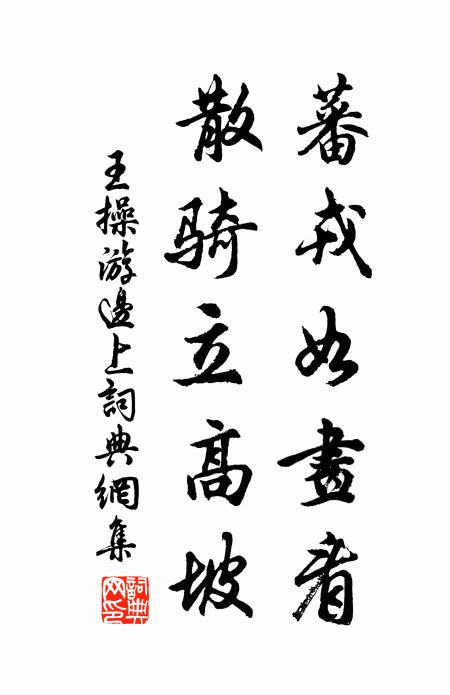 蕃戎如畫看
散騎立高坡
王操游邊上詞典網集
詞典網印